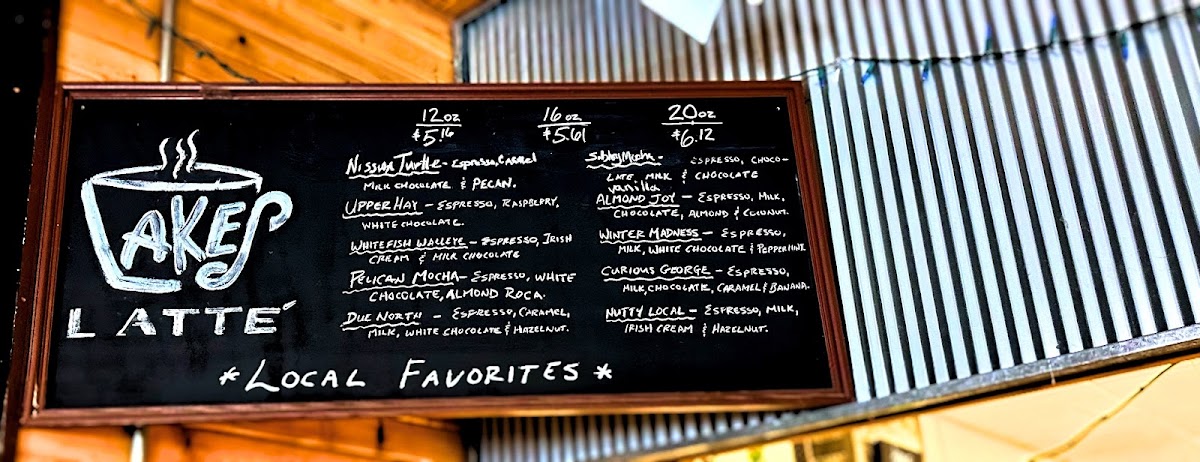 LAKES
LATTÉ
12oz 16oz 20oz
$5.16 $5.61 $6.12
Turtle - Espresso, Caramel
Milk Chocolate & Pecan.
Upper Hay - Espresso, Raspberry,
White Chocolate.
Whitefish Walleye - Espresso, Irish
Cream & Milk Chocolate
Pelican Mocha - Espresso, White
Chocolate, Almond Roca.
Due North - Espresso, Caramel,
Milk, White Chocolate & Hazelnut.
Mocha - Espresso, Choco-
late, Milk & Chocolate
vanilla
Almond Joy - Espresso, Milk,
Chocolate, Almond & Coconut.
Winter Madness - Espresso,
Milk, White Chocolate & Peppermint.
Curious George - Espresso,
Milk, Chocolate, Caramel & Banana.
Nutty Local - Espresso, Milk,
Irish Cream & Hazelnut.
*Local Favorites*